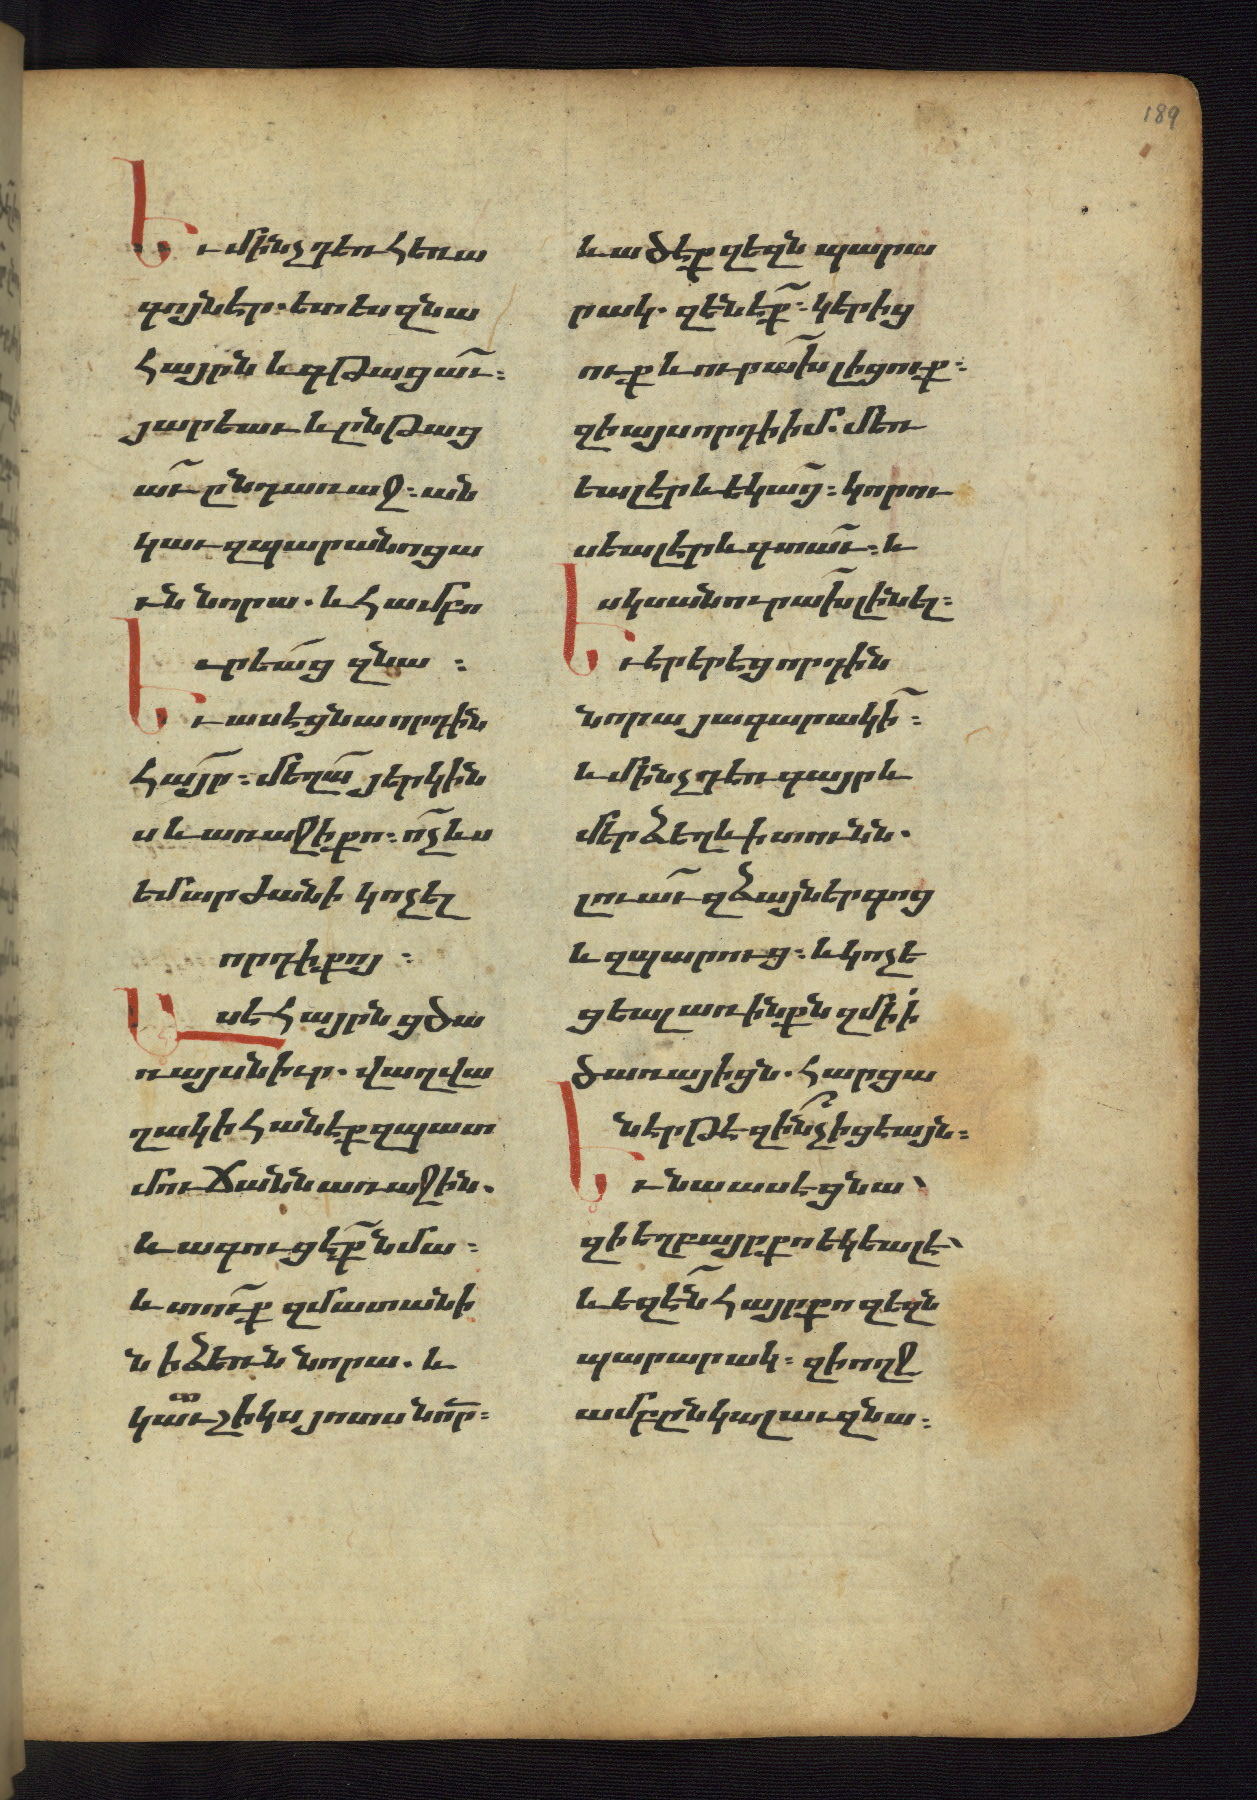 189
Եւ մինչդեռ հեռա
գոյն էր. ետես զնա
հայրն և գթացաւ:
յարեաւ և ընթաց
աւ ընդառաջ: ան
կաւ զպարանոցա
ւն նորա. և համբո
ւրեաց զնա:
Եւ ասէ ցնա որդին
հայր: մեղա յերկին
ս և առաջի քո: ոչ ևս
եմ արժանի կոչել
որդի քոյ:
Ասէ հայրն ցծա
ռայսն իւր. վաղվա
ղակի հանէք զպատ
մուճանն առաջին.
և ագուցէք նմա:
և տուք զմատանի
ն ի ձեռն նորա. և
կաւշիկս յոտս նոր:
և ածէք զեզն պարա
րակ. զենէք: կերից
ուք և ուրախ լիցուք:
զի այս որդի իմ. մեռ
եալ էր և եկաց: կորու
սեալ էր և գտաւ: և
սկսան ուրախ լինել:
Եւ էր երեց որդին
նորա յագարակի:
և մինչդեռ գայր և
մերձ եղև ի տունն.
լուաւ զձայն երգոց
և զպարուց: և կոչե
ցեալ առ ինքն զմի ի
ծառայիցն. հարցա
նէր թէ զինչ իցէ այն:
Եւ նա ասէ ցնա՝
զի եղբայր քո եկեալ է՝
և եզէն հայր քո զեզն
պարարակ: զի ողջ
ամբ ընկալաւ զնա: